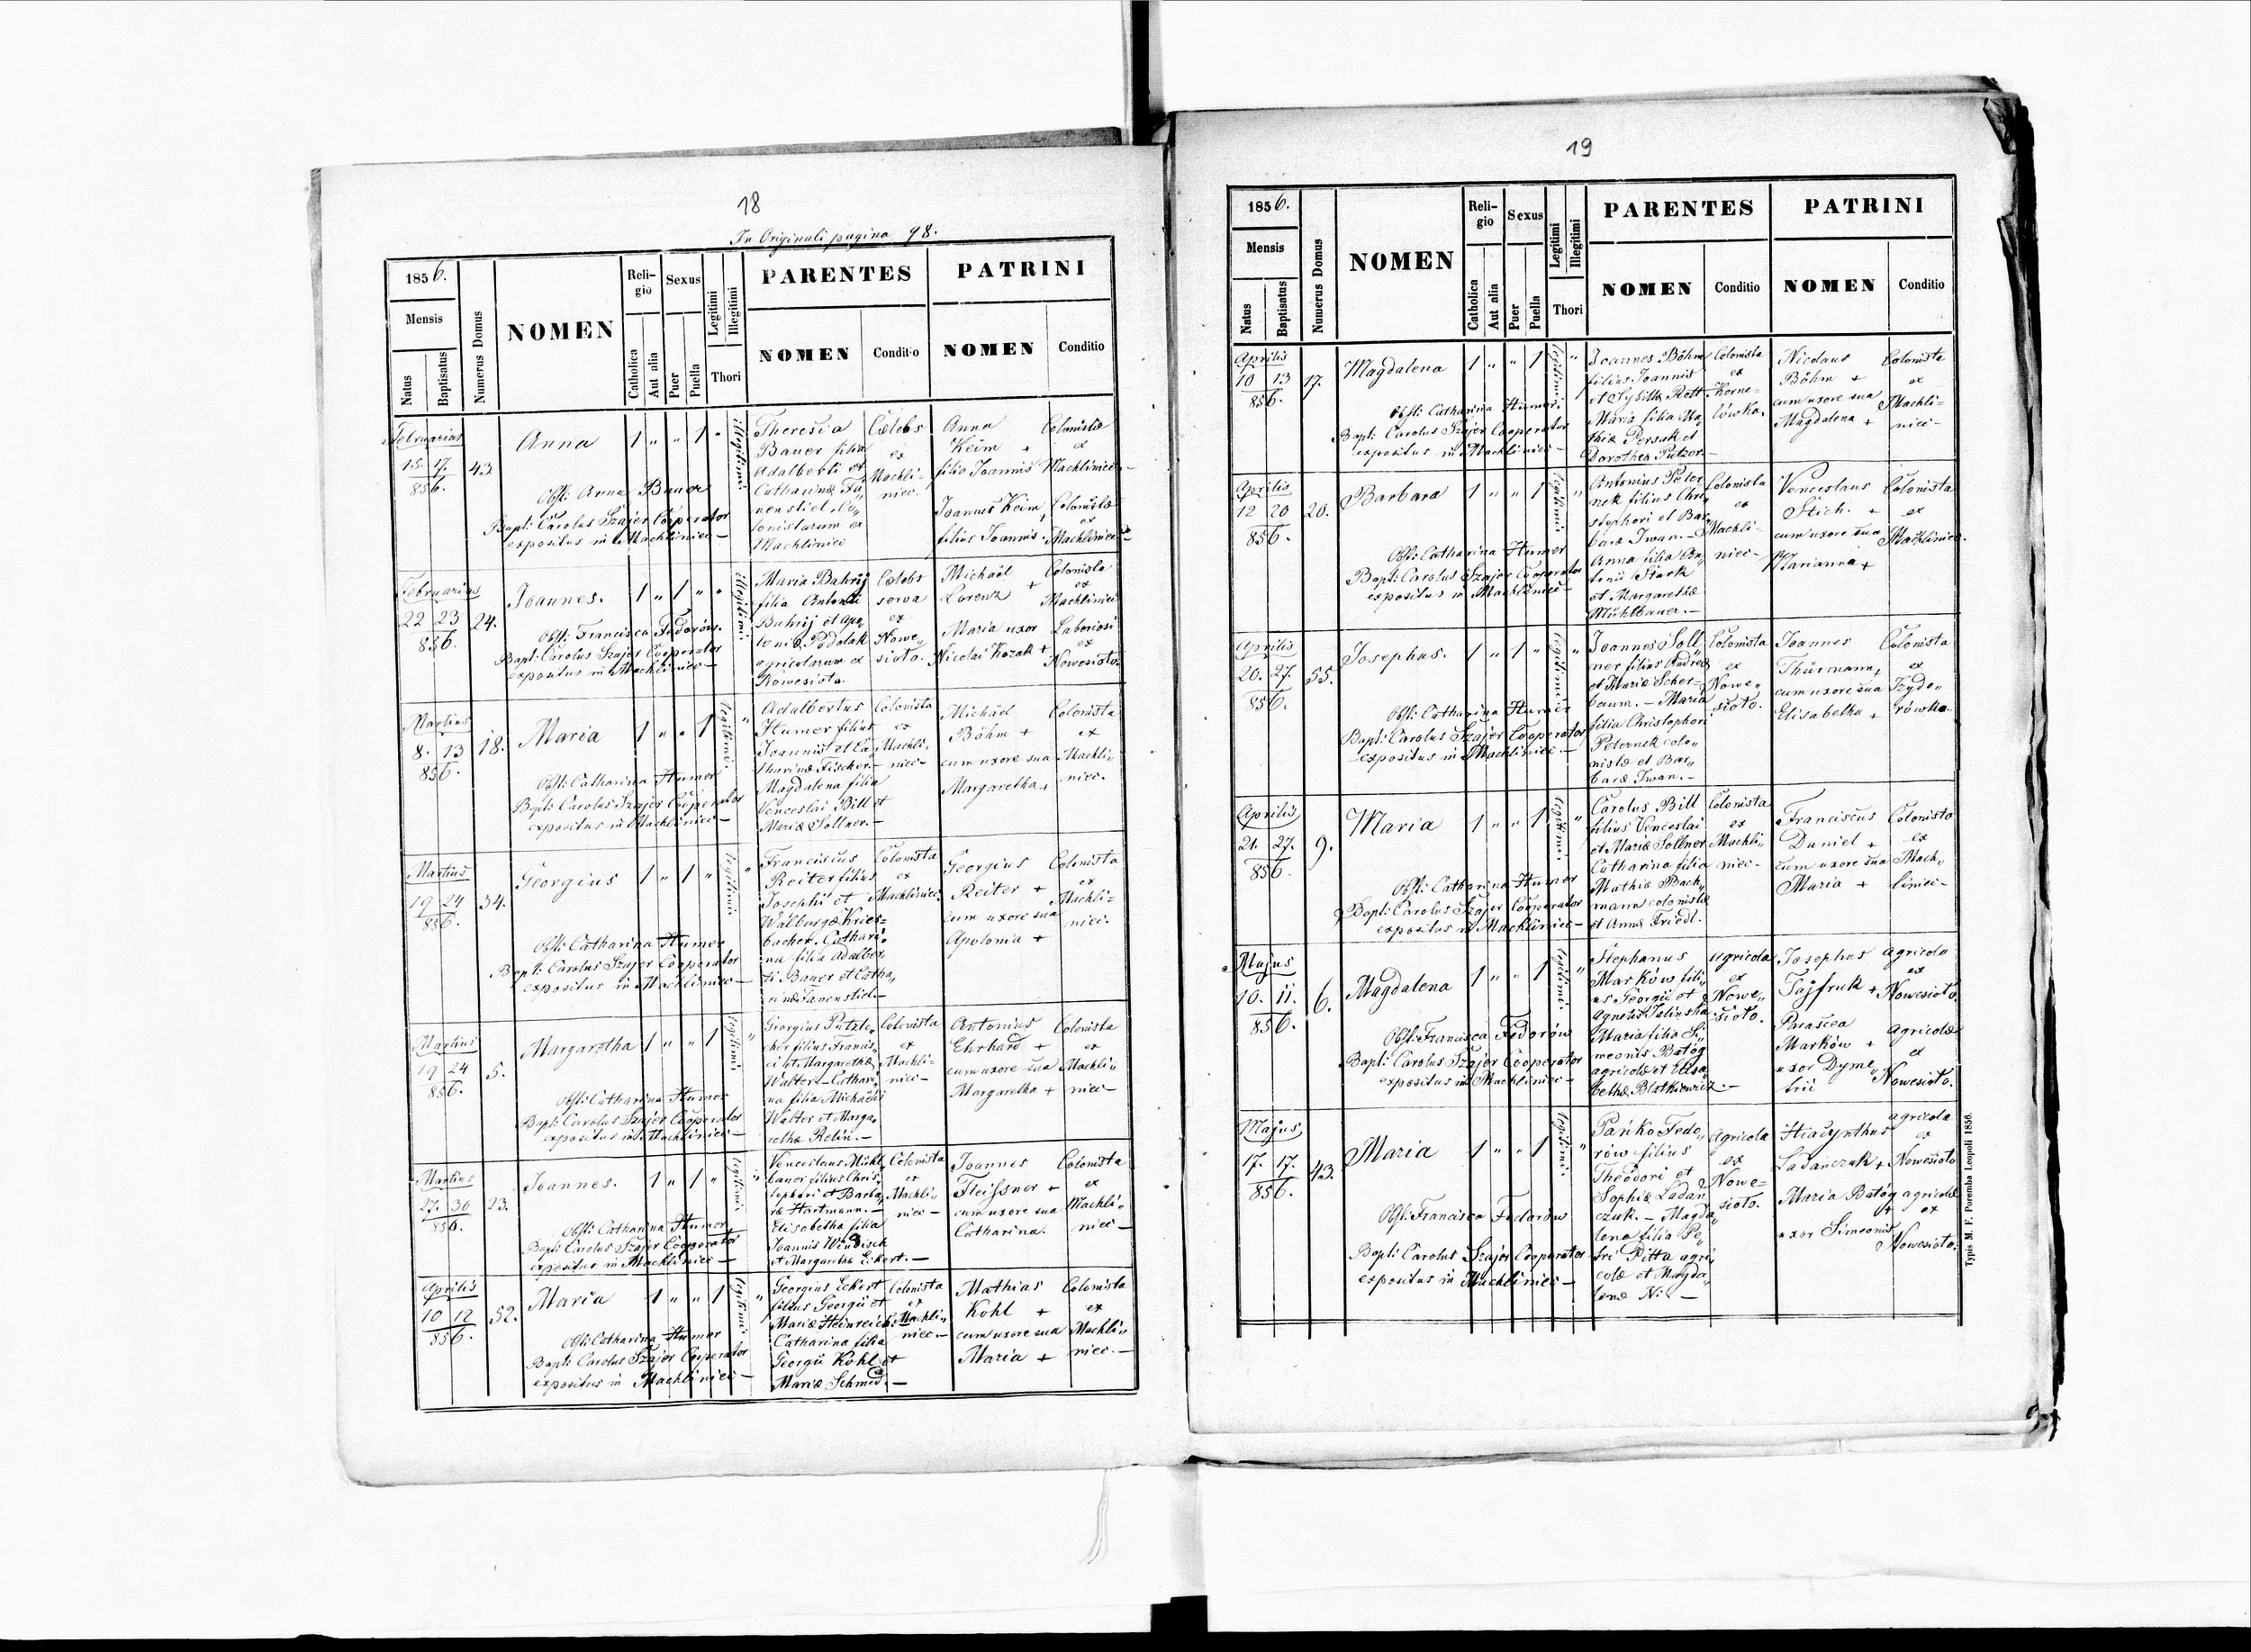 18
In Originali pagina 98.
1856.
Mensis
Natus
Baptisatus
Numerus Domus
NOMEN
Reli-
gio
Catholica
Aut alia
Sexus
Puer
Puella
Legitimi
Illegitimi
Thori
PARENTES
NOMEN
Conditio
PATRINI
NOMEN
Conditio
Februarius
15. 17.
856.
43.
Anna
1 „ „ 1 „
illegitimi
Obst: Anna Bauer
Bapt: Carolus Szajer Cooperator
expositus in Machliniec —
Theresia
Bauer filia
Adalberti et
Catharinæ Fa„
nenstiel, Co„
lonistarum ex
Machliniec
Cælebs
ex
Machli-
niec.
Anna
Keim +
filia Joannis
Joannes Keim +
filius Joannis
Colonistæ
ex
Machliniec —
Colonistæ
ex
Machliniec —
Februarius
22 23
856.
24.
Joannes.
1 „ 1 „ „
illegitimi
Obst: Francisca Fedorów.
Bapt: Carolus Szajer Cooperator
expositus in Machliniec —
Maria Bahrij
filia Antonii
Bahrij et Apo„
loniæ Podolak
agricolarum ex
Nowesioło.
Cælebs
serva
ex
Nowe„
sioło.
Michaël
Lorenz +
Maria uxor
Nicolai Kozak +
Colonista
ex
Machliniec
Laboriosi
ex
Nowesioło
Martius
8. 13
856.
18.
Maria
1 „ „ 1
legitimi
„
Obst: Catharina Humer
Bapt: Carolus Szajer Cooperator
expositus in Machliniec —
Adalbertus
Humer filius
Joannis et Ca„
tharinæ Fischer. —
Magdalena filia
Venceslai Bill et
Mariæ Sollner. —
Colonista
ex
Machli„
niec —
Michäel
Böhm +
cum uxore sua
Margaretha +
Colonista
ex
Machli„
niec.
Martius
19 24
856.
34.
Georgius
1 „ 1 „
legitimi
„
Obst: Catharina Humer
Bapt: Carolus Szajer Cooperator
expositus in Machliniec —
Franciscus
Reiter filius
Josephi et
Walburgæ Kries-
bacher. Cathari-
na filia Adalber„
ti Bauer et Catha„
rinæ Fanenstiel. —
Colonista
ex
Machliniec.
Georgius
Reiter +
cum uxore sua
Apolonia +
Colonista
ex
Machli-
niec.
Martius
19 24
856.
5.
Margaretha
1 „ „ 1
legitimi
„
Obst: Catharina Humer
Bapt: Carolus Szajer Cooperator
expositus in Machliniec —
Georgius Putzlo„
cher filius Francis„
ci et Margarethæ
Walter — Cathari„
na filia Michaëli
Walter et Marga„
rethæ Relin. —
Colonista
ex
Machli-
niec —
Antonius
Ehrhard +
cum uxore sua
Margaretha +
Colonista
ex
Machli„
niec —
Martius
27. 30
856.
23.
Joannes.
1 „ 1 „
legitimi
„
Obst: Catharina Humer
Bapt: Carolus Szajer Cooperator
expositus in Machliniec —
Venceslaus Mühl„
bauer filius Chris„
tophori et Barba„
ræ Hartmann. —
Elisabetha filia
Joannis Windisch
et Margarethæ Eckert. —
Colonista
ex
Machli„
niec —
Joannes
Fleißner +
cum uxore sua
Catharina.
Colonista
ex
Machli„
niec —
Aprilis
10 12
856.
52.
Maria
1 „ „ 1
legitimi
„
Obst: Catharina Humer
Bapt: Carolus Szajer Cooperator
expositus in Machliniec —
Georgius Eckert
filius Georgii et
Mariæ Heinreich. —
Catharina filia
Georgii Kohl et
Mariæ Schmid. —
Colonista
ex
Machli„
niec. —
Mathias
Kohl +
cum uxore sua
Maria +
Colonista
ex
Machli„
niec. —
19
1856.
Mensis
Natus
Baptisatus
Numerus Domus
NOMEN
Reli-
gio
Catholica
Aut alia
Sexus
Puer
Puella
Legitimi
Illegitimi
Thori
PARENTES
NOMEN
Conditio
PATRINI
NOMEN
Conditio
Aprilis
10 13
856.
17.
Magdalena
1 „ „ 1
legitimi
„
Obst: Catharina Humer.
Bapt: Carolus Szajer Cooperator
expositus in Machliniec —
Joannes Böhm
filius Joannis
et Sybillæ Rott
Maria filia Ma„
thiæ Persak et
Dorotheæ Putzer. —
Colonista
ex
Korne-
lówka.
Nicolaus
Böhm +
cum uxore sua
Magdalena +
Colonista
ex
Machli-
niec —
Aprilis
12 20
856.
20.
Barbara
1 „ „ 1
legitimi
„
Obst: Catharina Humer
Bapt: Carolus Szajer Cooperator
expositus in Machliniec —
Antonius Peter
nek filius Chri„
stophori et Bar„
baræ Iwan. —
Anna filia An„
tonii Stark
et Margarethæ
Mühlbauer. —
Colonista
ex
Machli-
niec —
Venceslaus
Stich. +
cum uxore sua
Marianna +
Colonista
ex
Machliniec.
Aprilis
20. 27.
856.
55.
Josephus.
1 „ 1 „
legitimi
„
Obst: Catharina Humer
Bapt: Carolus Szajer Cooperator
expositus in Machliniec —
Joannes Soll„
ner filius Andreæ
et Mariæ Scher-
baum. — Maria
filia Christophori
Peternek colo„
nistæ et Bar„
baræ Iwan. —
Colonista
ex
Nowe„
sioło.
Joannes
Thürmann +
cum uxore sua
Elisabetha +
Colonista
ex
Izydo„
rówka.
Aprilis
21. 27.
856.
9.
Maria
1 „ „ 1
legitimi
„
Obst: Catharina Humer
Bapt: Carolus Szajer Cooperator
expositus in Machliniec —
Carolus Bill
filius Venceslai
et Mariæ Sollner
Catharina filia
Mathiæ Bach„
mann colonistæ
et Annæ Friedl.
Colonista
ex
Machli„
niec —
Franciscus
Daniel +
cum uxore sua
Maria +
Colonista
ex
Mach„
liniec —
Majus
10. 11.
856.
6.
Magdalena
1 „ „ 1
legitimi
„
Obst: Francisca Fedorów
Bapt: Carolus Szajer Cooperator
expositus in Machliniec —
Stephanus
Marków fili„
us Georgii et
Agnetis Jalinska
Maria filia Si„
meonis Batóg
agricolæ et Elisa„
bethæ Blatkiewicz. —
Agricola
ex
Nowe„
sioło.
Josephus
Fajfruk +
Parascea
Marków +
uxor Dyme„
trii
Agricola
ex
Nowesioło
Agricolæ
ex
Nowesioło.
Majus
17. 17.
856.
43.
Maria
1 „ „ 1
legitimi
„
Obst: Francisca Fedorów
Bapt: Carolus Szajer Cooperator
expositus in Machliniec —
Pańko Fedo„
rów filius
Theodori et
Sophiæ Ładań
czuk. — Magda„
lena filia Pe„
tri Pitta agri„
colæ et Magda„
lenæ N: —
Agricola
ex
Nowe-
sioło.
Hiacynthus
Ładańczuk +
Maria Batóg
+
uxor Simeonis
Agricola
ex
Nowesioło
agricolæ
ex
Nowesioło.
Typis M. F. Poremba Leopoli 1856.